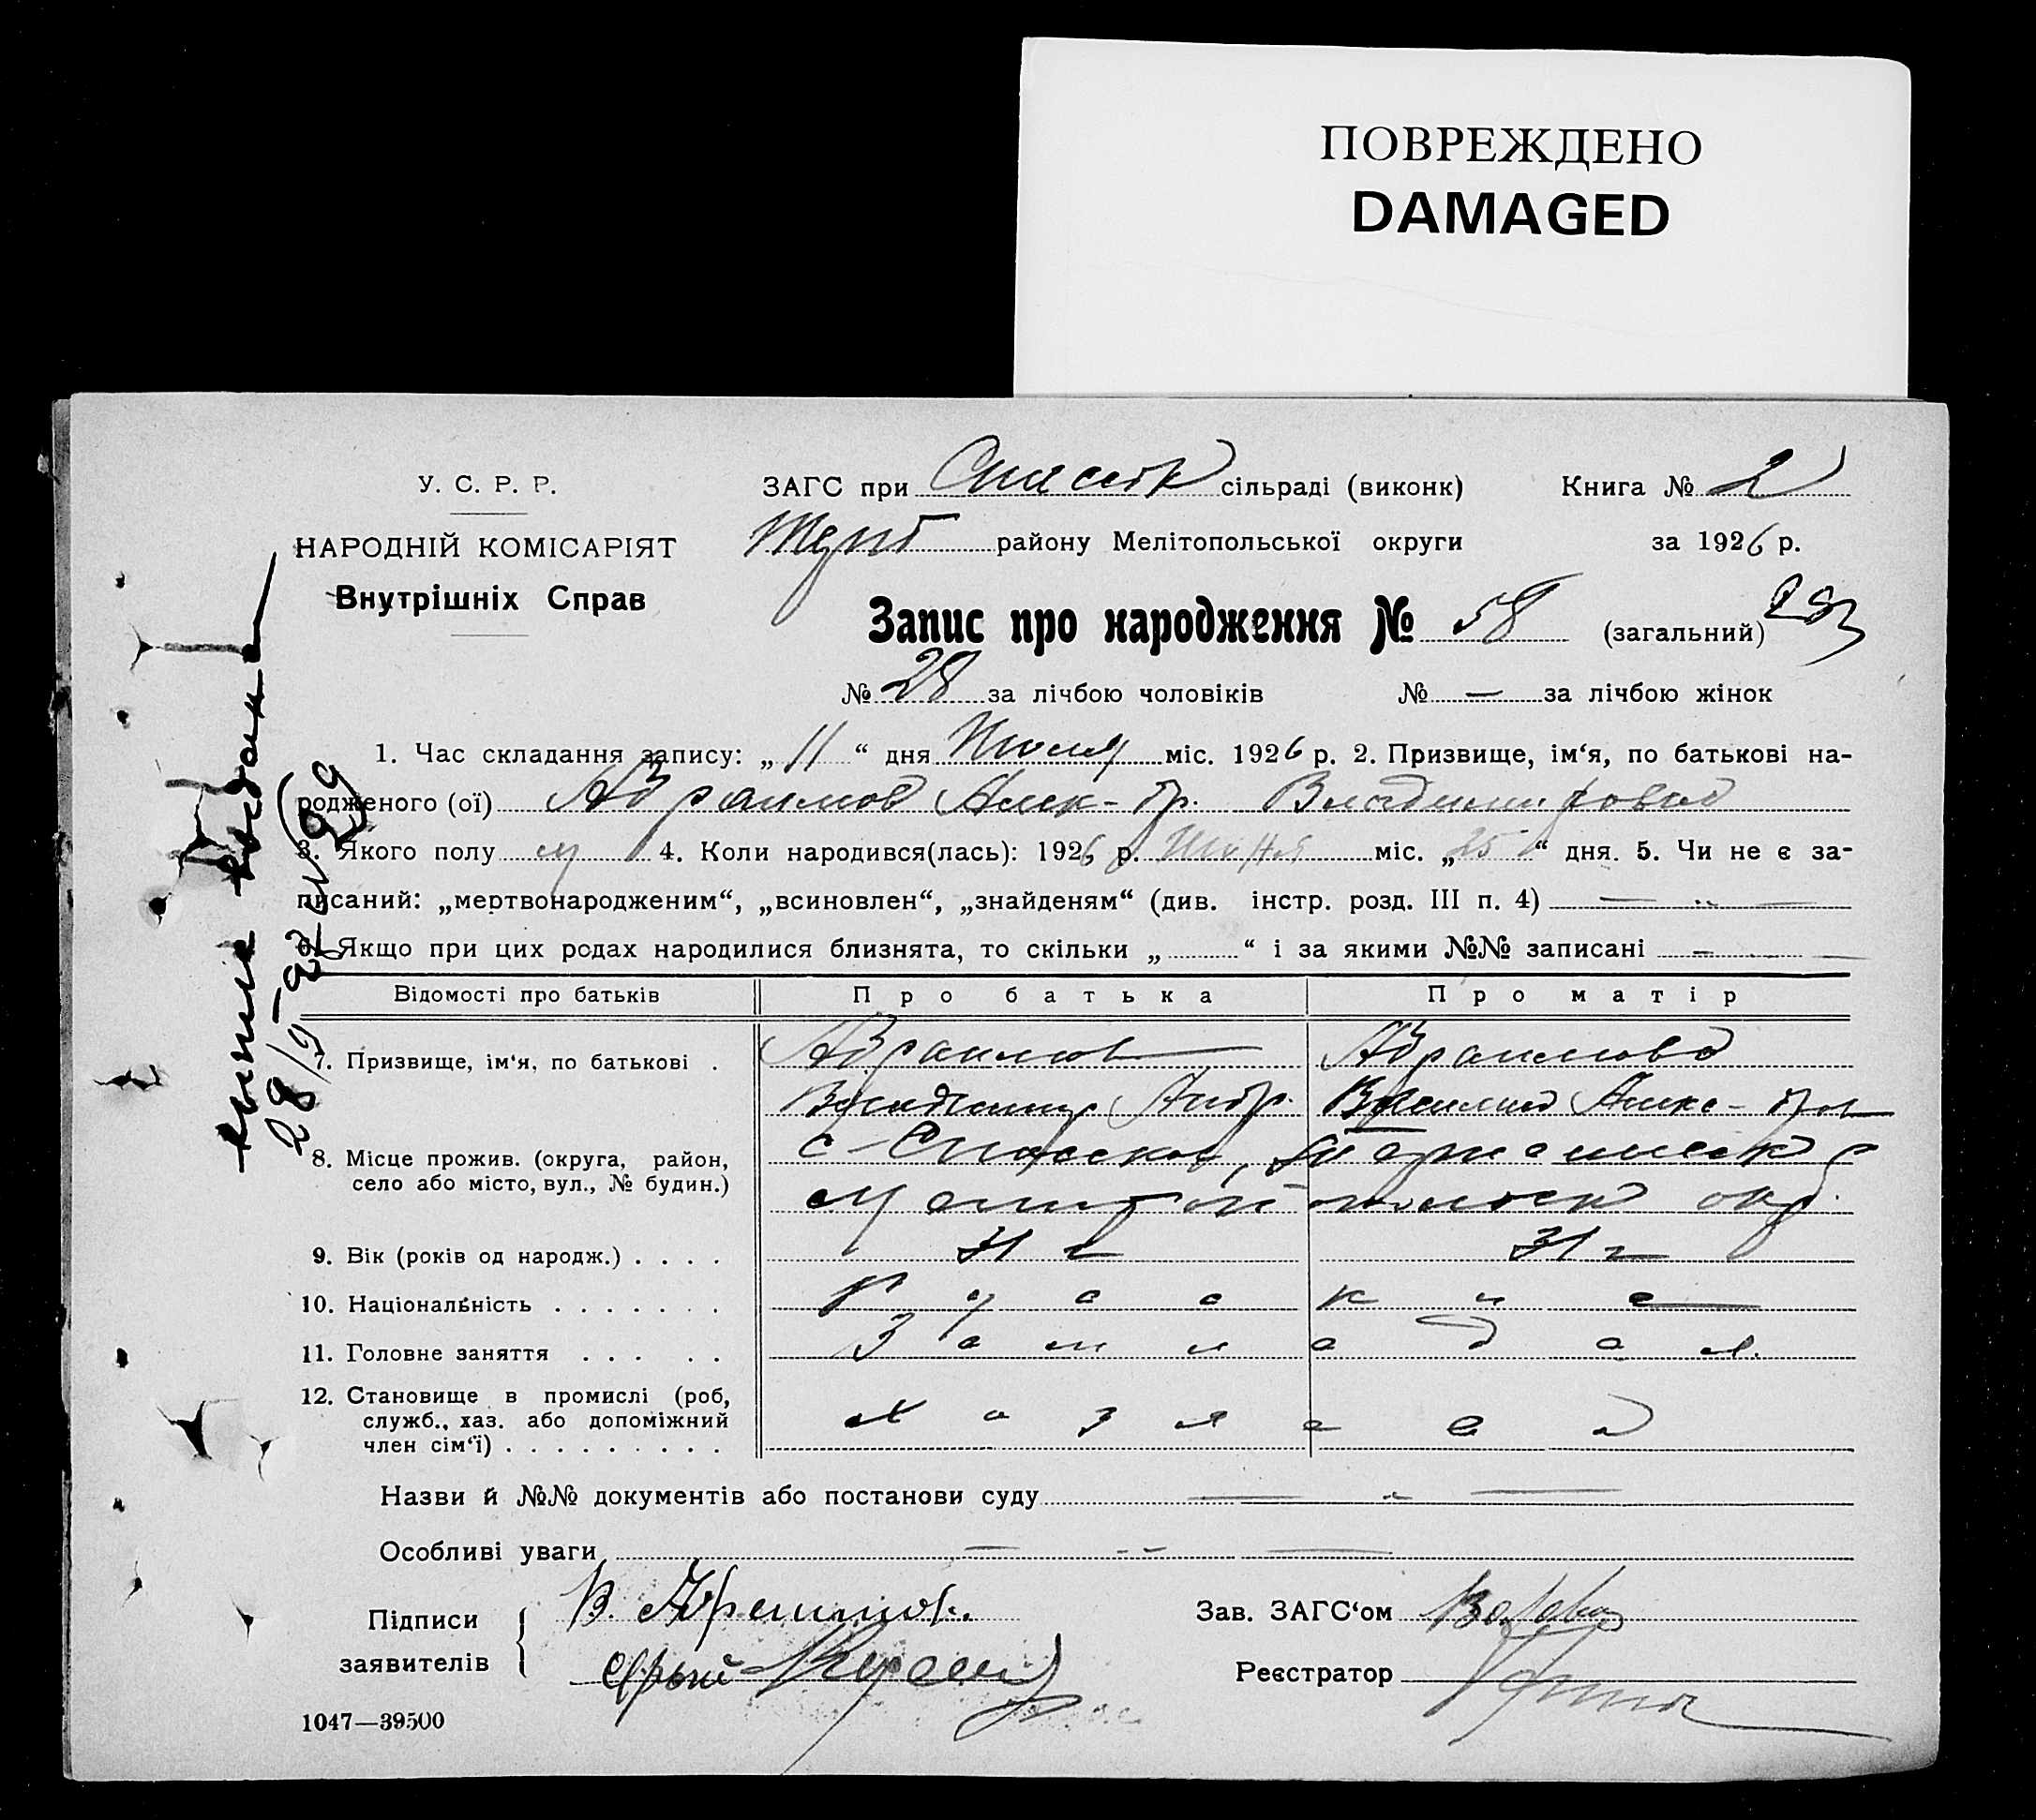 ПОВРЕЖДЕНО
DAMAGED
У. С. Р. Р.
НАРОДНІЙ КОМІСАРІЯТ
Внутрішніх Справ
ЗАГС при Спасск сільраді (виконк) Книга № 2
району Мелітопольської округи за 1926 р.
Запис про народження № 58 (загальний)
№ 28 за лічбою чоловіків № — за лічбою жінок
1. Час складання запису: „ 11 “ дня Июля міс. 1926 р. 2. Призвище, ім‘я, по батькові на-
родженого (ої) Абрамов Алек-др. Владимирович
3. Якого полу м 4. Коли народився(лась): 1926 р. Июня міс. „ 25 “ дня. 5. Чи не є за-
писаний: „мертвонародженим“, „всиновлен“, „знайденям“ (див. інстр. розд. III п. 4) —
6. Якщо при цих родах народилися близнята, то скільки „ “ і за якими №№ записані —
Відомості про батьків Про батька Про матір
7. Призвище, ім‘я, по батькові . Абрамов Абрамова
Владимир Андр.
8. Місце прожив. (округа, район,
село або місто, вул., № будин.)
с-Спасское,
Мелитопольск окр.
9. Вік (років од народж.) . . . . 31 г 31 г
10. Національність . . . . . . . Русские
11. Головне заняття . . . . .
12. Становище в промислі (роб,
служб., хаз. або допоміжний
член сім‘ї) . . . . . . . . .
Назви й №№ документів або постанови суду —
Особливі уваги —
Підписи
заявителів
В. Абрамов.
Зав. ЗАГС‘ом
Реєстратор
1047—39500